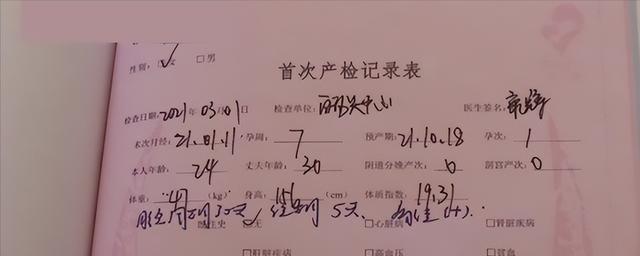 性别：☑女 □男
首次产检记录表
检查日期：2021年03月01日 检查单位： 中心 医生签名：
末次月经：21.01.11 孕周：7 预产期：21.10.18 孕次：1
本人年龄：24 丈夫年龄：30 阴道分娩产次：0 剖宫产次：0
体重： (kg) 身高：151 (cm) 体质指数：19.31
月经周期30天，经期 5天， (+).
既往史 ☑无 □心脏病 □肾脏疾病
□肝脏疾病 □高血压 □贫血